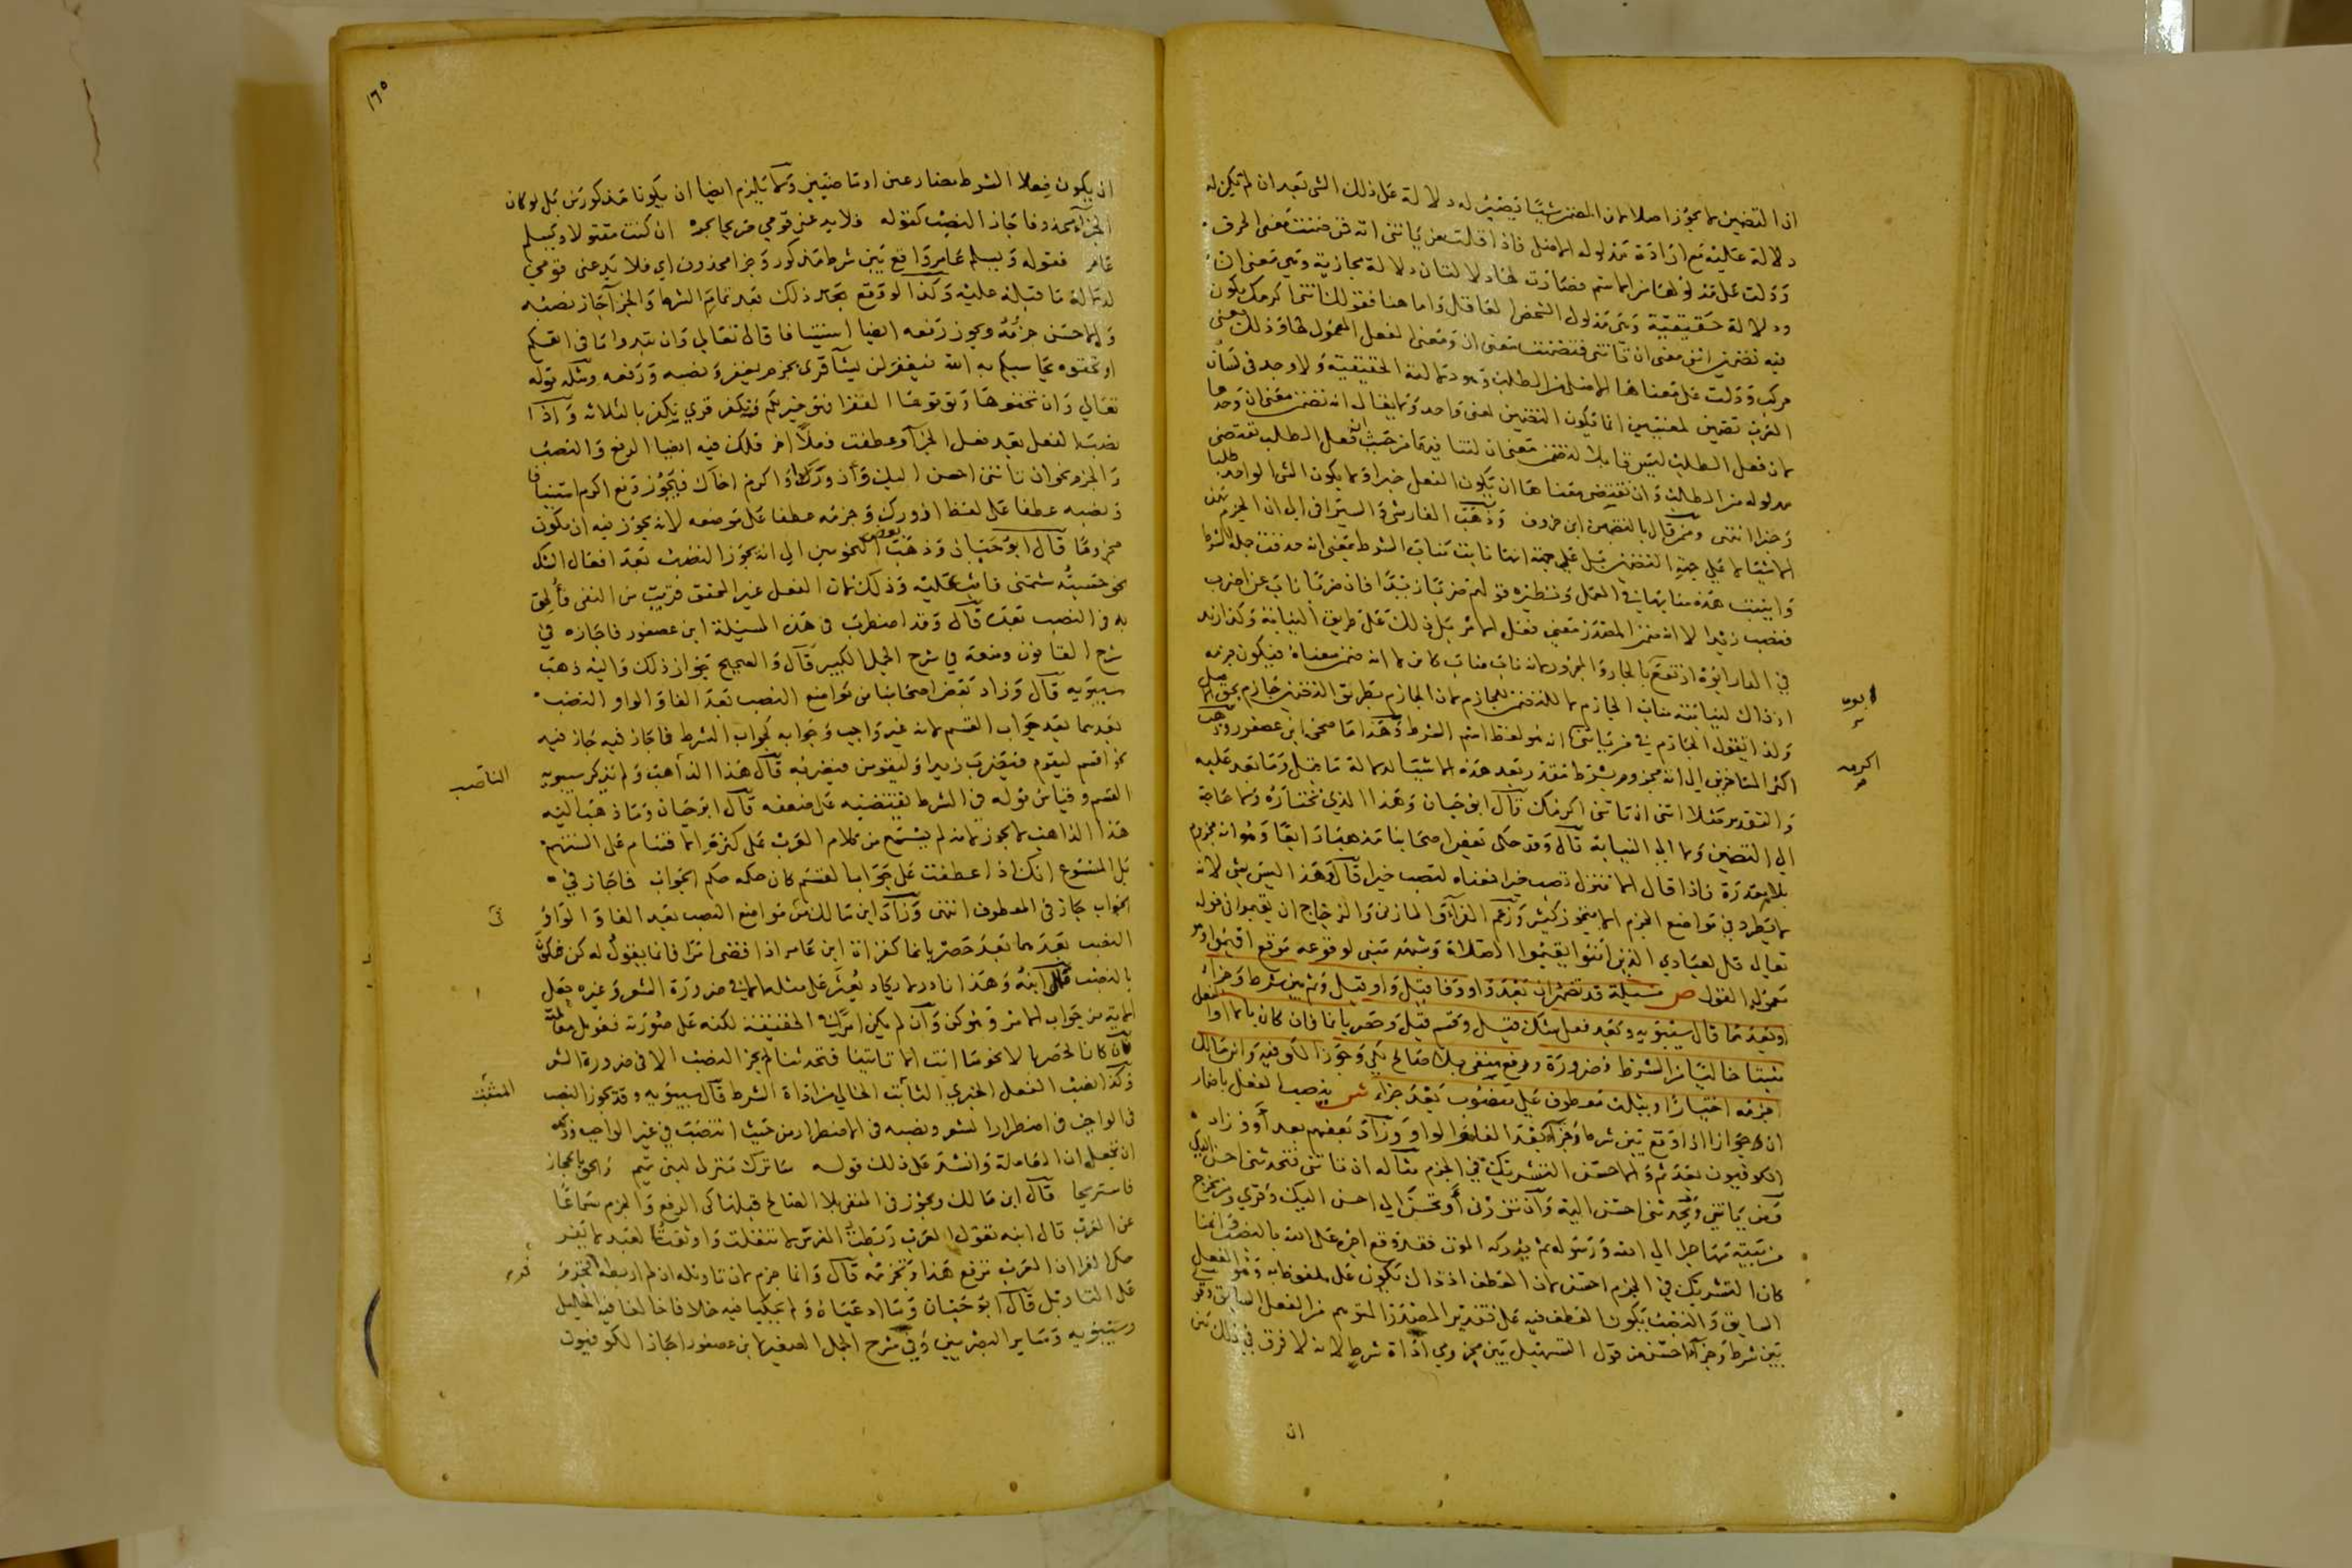 اذ التضمين لا يجوز اصلا لان المضمن شيئا يصير له دلالة على ذلك الشي بعد ان لم تكن له
دلالة عليه مع ارادة مدلوله الاصلي فاذا قلت من ياتني اته فمن ضمنت معنى الحرف
ودلت على مدلولها من الاسم فصارت لها دلالتان دلالة مجازية وهي معنى ان
ودلالة حقيقية وهي مدلول الشخص العاقل واما هنا فقولك ائتني اكرمك يكون
فيه تضمين ائتني معنى ان تاتني فتضمنت معنى ان ومعنى الفعل المعمول لها وذلك معنى
مركب ودلت على معناها الاصلي من الطلب وهو دلالته الحقيقية ولا يوجد في لسان
العرب تضمين لمعنيين انما يكون التضمين لمعنى واحد ولا يقال انه تضمن معنى ان وحدها
لان فعل الطلب ليس قابلا لتضمن معنى ان لتنافيهما من حيث ان فعل الطلب يقتضي
مدلوله من الطلب وان تقتضي معناها ان يكون الفعل خبرا ولا يكون الشي الواحد طلبا
وخبرا انتهى وممن قال بالتضمين ابن خروف وذهب الفارسي والسيرافي الى ان الجزم بهذه
الاشياء لا على جهة التضمين بل على جهة انها نابت مناب الشرط بمعنى انه حذفت جملة الشرط
وانيبت هذه منابها في العمل ونظيره قولهم ضربا زيدا فان ضربا ناب عن اضرب
فنصب زيدا لا انه ضمن المصدر معنى فعل الامر بل ذلك على طريق النيابة وكذا زيد
في الدار ابوه ارتفع بالجار والمجرور لانه ناب مناب كائن لا انه ضمن معناه فيكون جزمه
اذ ذاك لنيابته مناب الجازم لا لتضمن الجازم لان الجازم بطريق التضمن جازم بحق الاصل
ولذا نقول الجازم في من ياتني انه هو لفظ اسم الشرط وهذا ما صححه ابن عصفور وذهب
اكثر المتاخرين الى انه مجزوم بشرط مقدر بعد هذه الاشياء لدلالة ما قبل وما بعد عليه
والتقدير مثلا ائتني ان تاتني اكرمك قال ابو حيان وهذا الذي نختاره ولا حاجة
الى التضمين ولا الى النيابة قال وقد حكى بعض اصحابنا مذهبا رابعا وهو انه مجزوم
بلام مقدرة فاذا قال الا تنزل تصب خيرا فمعناه لتصب خيرا قال وهذا ليس بشي لانه
لا يطرد في مواضع الجزم الا بتجوز كثير وزعم الفراء والمازني والزجاج ان يقيموا في قوله
تعالى قل لعبادي الذين امنوا يقيموا الصلاة وشبهه مبني لوقوعه موقع اقيموا وهو
معمول القول ص مسئلة قد تضمر ان بعد واو وفا قيل واو قيل وثم بين شرط وجزاء
او بعدهما قال سيبويه وبعد فعل شك قيل وقسم قيل وحصر بانما فان كان بالا او الفعل
مثبتا خاليا من الشرط فضرورة ورفع منفي بلا صالح لكي وجوز الكوفية وابن مالك
جزمه اختيارا ويثلث معطوف على منصوب بعد جزاء ش ينصب الفعل باضمار
ان جوازا اذا وقع بين شرط وجزاء بعد الفاء والواو وزاد بعضهم بعد او وزاد
الكوفيون بعد ثم والاحسن التشريك في الجزم مثاله ان تاتني فتحدثني احسن اليك
ومن ياتني ويحدثني احسن اليه وان تزرني او تحسن الي احسن اليك وقري ومن يخرج
من بيته مهاجرا الى الله ورسوله ثم يدركه الموت فقد وقع اجره على الله بالنصب وانما
كان التشريك في الجزم احسن لان العطف اذ ذاك يكون على ملفوظ به وهو الفعل
السابق والنصب يكون العطف فيه على تقدير المصدر المتوهم من الفعل السابق وقو
بين شرط وجزاء احسن من قول التسهيل بين مجزومي اداة شرط لانه لا فرق في ذلك بين
ان
ان يكون فعلا الشرط مضارعين او ماضيين ولا يلزم ايضا ان يكونا مذكورين بل لو كان
الجزاء محذوفا جاز النصب كقوله فلا يدعني قومي صريحا لحرة ان كنت مقتولا ويسلم
عامر فقوله ويسلم عامر واقع بين شرط مذكور وجزا محذوف اي فلا يدعني قومي
لدلالة ما قبله عليه وكذا لو وقع بعد ذلك بعد تمام الشرط والجزاء جاز نصبه
والاحسن جزمه ويجوز رفعه ايضا استينافا قال تعالى وان تبدوا ما في انفسكم
او تخفوه يحاسبكم به الله فيغفر لمن يشاء قرى بجزم يغفر ونصبه ورفعه ومثله قوله
تعالى وان تخفوها وتوتوها الفقرا فهو خير لكم ونكفر قري نكفر بالثلاثة واذا
نصبت الفعل بعد فعل الجزاء وعطفت فعلا اخر فلك فيه ايضا الرفع والنصب
والجزم نحو ان تاتني احسن اليك وازورك واكرم اخاك فيجوز رفع اكرم استينافا
ونصبه عطفا على لفظ ازورك وجزمه عطفا على موضعه لانه يجوز فيه ان يكون
مجزوما قال ابو حيان وذهب بعض النحويين الى انه يجوز النصب بعد افعال الشك
نحو حسبته شتمني فاثب عليه وذلك لان الفعل غير المحقق قريب من النفي فالحق
به في النصب بعده قال وقد اضطرب في هذه المسئلة ابن عصفور فاجازه في
شرح القانون ومنعه في شرح الجمل الكبير قال والصحيح جواز ذلك واليه ذهب
سيبويه قال وزاد بعض اصحابنا من مواضع النصب بعد الفا والواو النصب
بعدهما بعد جواب القسم لانه غير واجب وجوابه كجواب الشرط فاجاز فيه جاز فيه
نحو اقسم ليقوم فيضرب زيدا وليقومن فيضربه قال هذا الذاهب ولم يذكر سيبويه
القسم وقياس قوله في الشرط يقتضيه على ضعفه قال ابو حيان وما ذهب اليه
هذا الذاهب لا يجوز لانه لم يسمع من كلام العرب على كثرة اقسام على السنتهم
بل المسموع انك اذا عطفت على جواب القسم كان حكمه حكم الجواب فاجاز في
الجواب جاز في المعطوف انتهى وزاد ابن مالك من مواضع النصب بعد الفا والواو
النصب بعدهما بعد حصر بانما كقراة ابن عامر اذا قضى امرا فانما يقول له كن فيكون
بالنصب قال ابنه وهذا نادر لا يكاد يعثر على مثله الا في ضرورة الشعر وغيره جعل
الاية من جواب الامر وهو كن وان لم يكن امرا في الحقيقة لكنه على صورته فعومل معاملته
فان كان الحصر بالا نحو ما انت الا تاتينا فتحدثنا لم يجز النصب الا في ضرورة الشعر
وكذا نصب الفعل الخبري الثابت الخالي من اداة الشرط قال سيبويه وقد يجوز النصب
في الواجب في اضطرار الشعر ونصبه في الاضطرار من حيث انتصب في غير الواجب وذلك
ان تجعل ان العاملة وانشد على ذلك قوله ساترك منزلي لبني تميم والحق بالحجاز
فاستريحا قال ابن مالك ويجوز في المنفي بلا الصالح قبلها كي الرفع والجزم سماعا
عن العرب قال ابنه تقول العرب ربطت الفرس لا تنفلت واوثقت العبد لا يفر
حكى الفرا ان العرب ترفع هذا وتجزمه قال وانما جزم لان تاويله ان لم اربطه فجزم
على التاويل قال ابو حيان وما ادعياه ولم يحكيا فيه خلافا خالفا فيه الخليل
وسيبويه وساير البصريين وفي شرح الجمل الصغير لابن عصفور اجاز الكوفيون
الناصب
المثبت